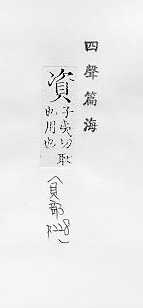 四聲篇海
資
子夷切取
也用也
(貝部 P.228)